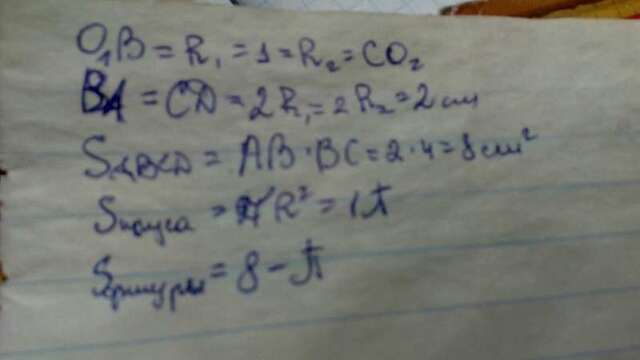 O₁B = R₁ = 1 = R₂ = CO₂
BA = CD = 2R₁ = 2R₂ = 2 см
S ABCD = AB · BC = 2 · 4 = 8 см²
S = πR² = 1π
S фигуры = 8 - π